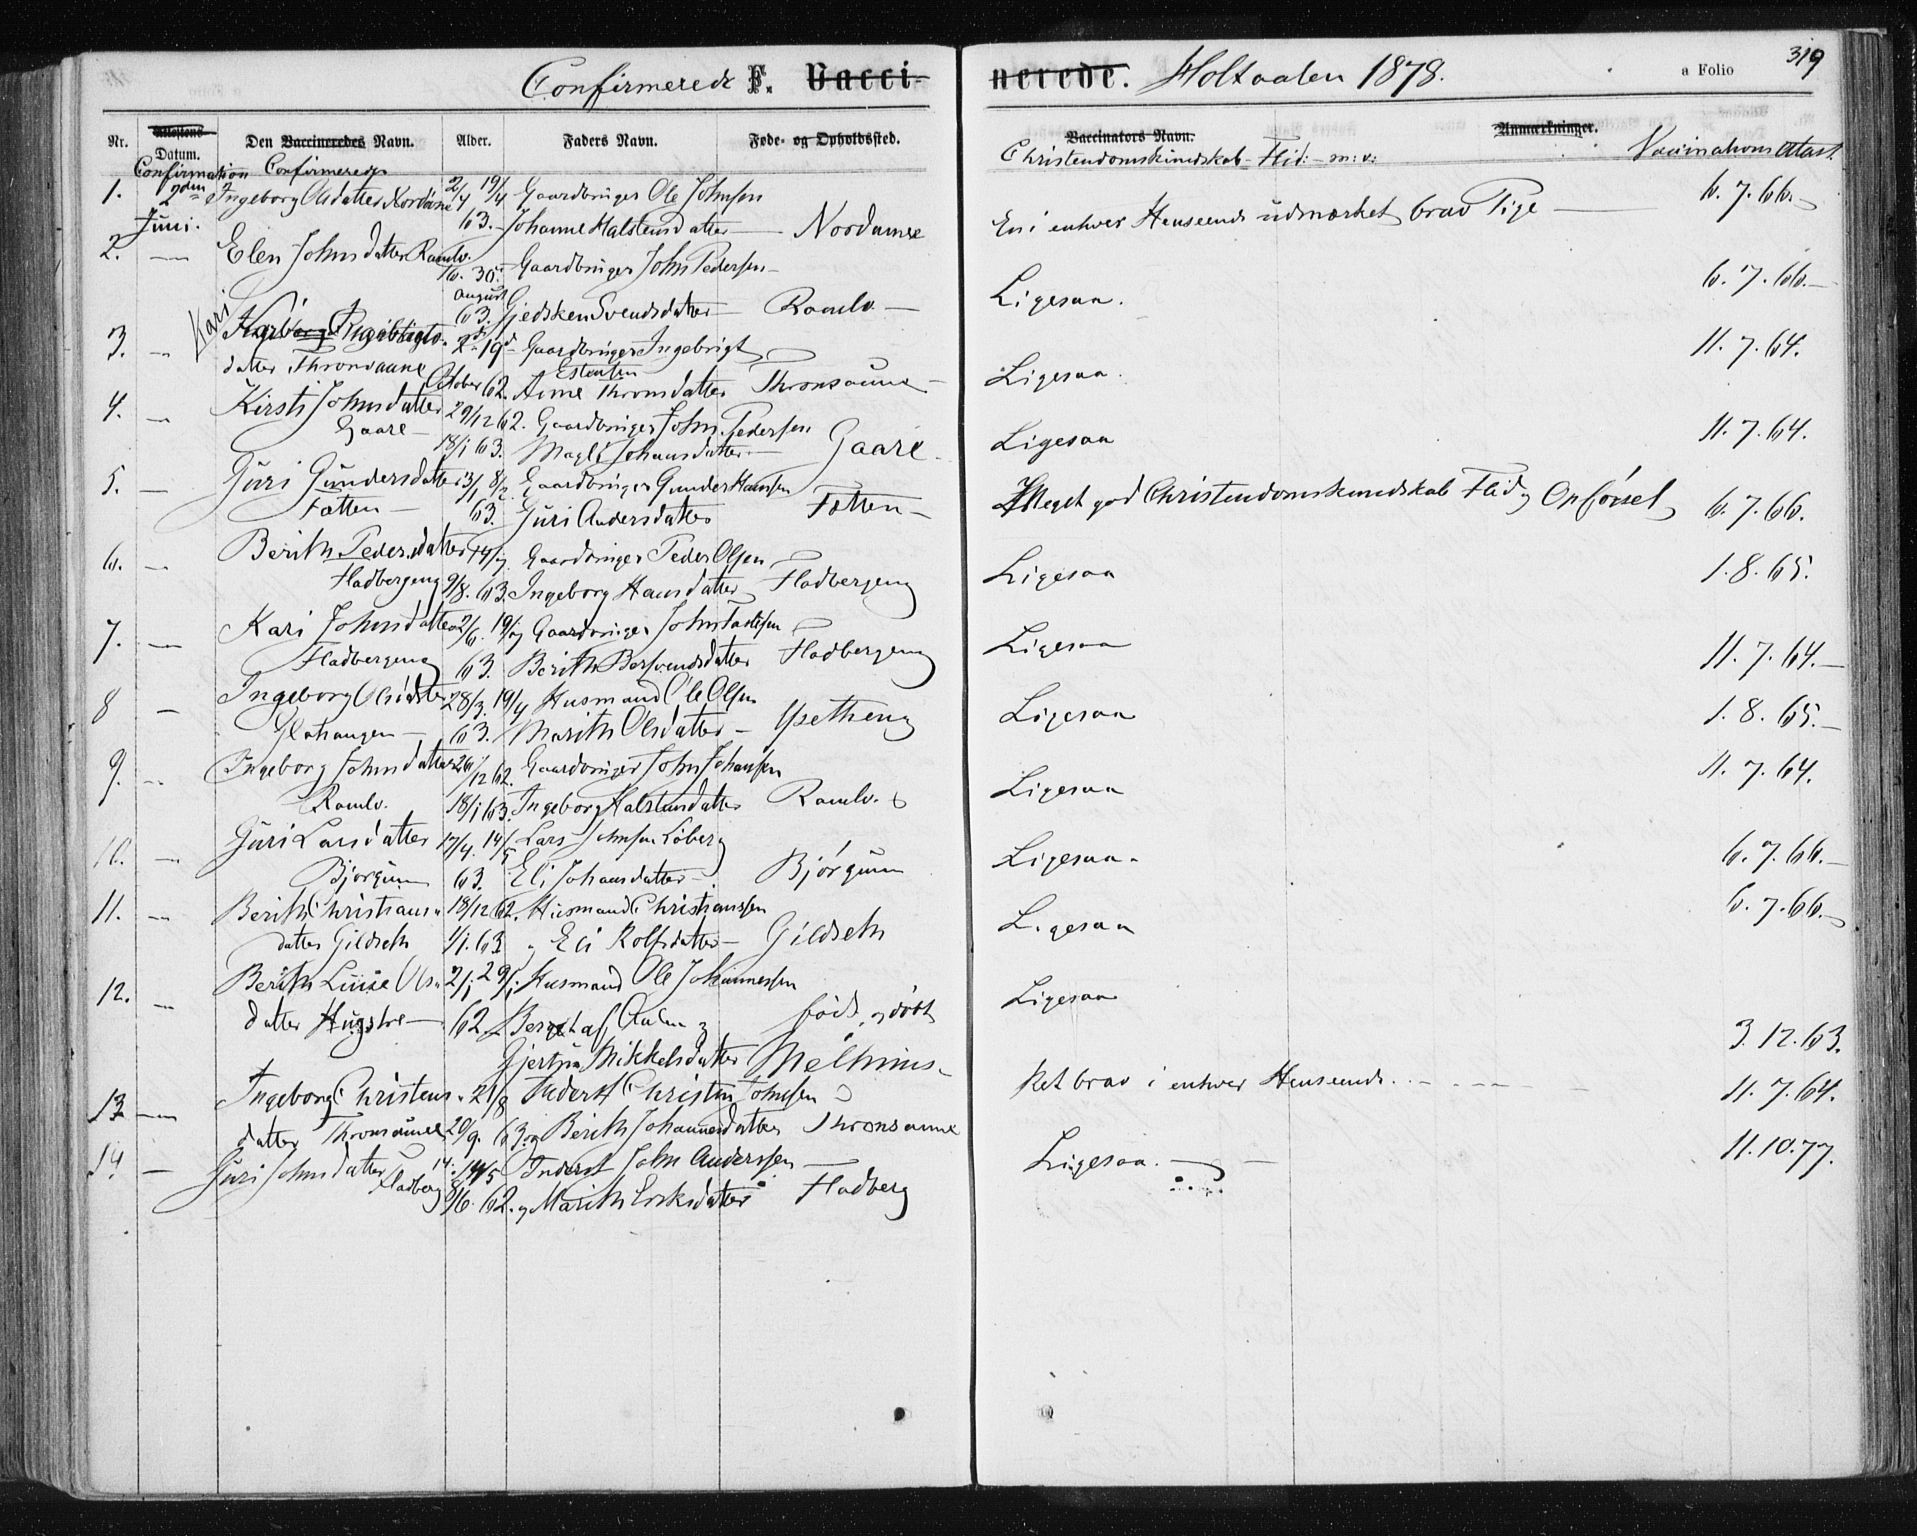 Confirmerede F. Vacci-nerede. Holtaalen 1878. a Folio 319
Nr. Attestens Datum. Den Vaccineredes Navn. Alder. Faders Navn. Føde- og Opholdssted. Vaccinators Navn. Anmærkninger.
Confirmation Confirmeredes Christendomskundskab Flid: m: v: Vaccinations Attest
1. 2den Ingeborg Olsdatter Nordaune 2/4 19/4 Gaardbruger Ole Johnsen
Juni. 63. Johanne Halstensdatter Nordaunee En i enhver Henseende udmærket brav Pige 6. 7. 66.
2. Elen Johnsdatter Ramlo. 16. 30. Gaardbruger John Pedersen
august 63. Gjedsken Svendsdatter Ramlo Ligesaa. 6. 7. 66.
3. Kari Ingebrigts- 2d 19d Gaardbruger Ingebrigt Estensen
datter Thronsaune October 62. Anne Thronsdatter Thronsaune Ligesaa. 11. 7. 64.
4. Kirsti Johnsdatter 29/12 62. Gaardbruger John Pedersen
Gaare 18/1 63. Magli Johansdatter Gaare Ligesaa 11. 7. 64.
5. Guri Gundersdatter 13/1 8/2 Gaardbruger Gunder Hansen
Fætten 63. Guri Andersdatter Fætten Meget god Christendomskundskab Flid og Opførsel 6. 7. 66.
6. Berith Pedersdatter 14/7 Gaardbruger Peder Olsen
Fladbergeng 9/8. 63. Ingeborg Hansdatter Fladbergeng Ligesaa 1. 8. 65.
7. Kari Johnsdatter 2/6. 19/7 Gaardbruger John
Fladbergeng 63. Berith Bersvendsdatter Fladbergeng Ligesaa 11. 7. 64.
8 Ingeborg Olsdatter 28/3. 19/4 Husmand Ole Olsen
63. Marith Olsdatter Ysetheng Ligesaa 1. 8. 65.
9. Ingeborg Johnsdatter 26/12 62. Gaardbruger John Johansen
Ramlo. 18/1 63. Ingeborg Halstensdatter Ramlo. Ligesaa 11. 7. 64.
10. Guri Larsdatter 17/4. 14/5 Lars Johnsen Løberg
Bjørgum 63. Eli Johansdatter Bjørgum Ligesaa. 6. 7. 66.
11. Berith Christians- 18/12 62. Husmand Christianssen
datter Gildseth 1/1. 63 og Eli Rolfsdatter Gildseth Ligesaa 6. 7. 66.
12. Berith Luise Ols- 2/1 29/1 Husmand Ole Johannessen
datter 62. Berget af Aalen og født og døbt Ligesaa
Gjertrua Mikkelsdatter Melhuus 3. 12. 63.
13 Ingeborg Christens- 21/8 Inderst Christen Johnsen
datter Thronsaunee 20/9. 63. og Berith Johannesdatter Thronsaune Ret brav i enhver Henseende. 11. 7. 64.
14. Guri Johnsdatter 14/5 Inderst John Anderssen
Fladberg 8/6. 62. og Marith Eriksdatter Fladberg Ligesaa. 11. 10. 77.